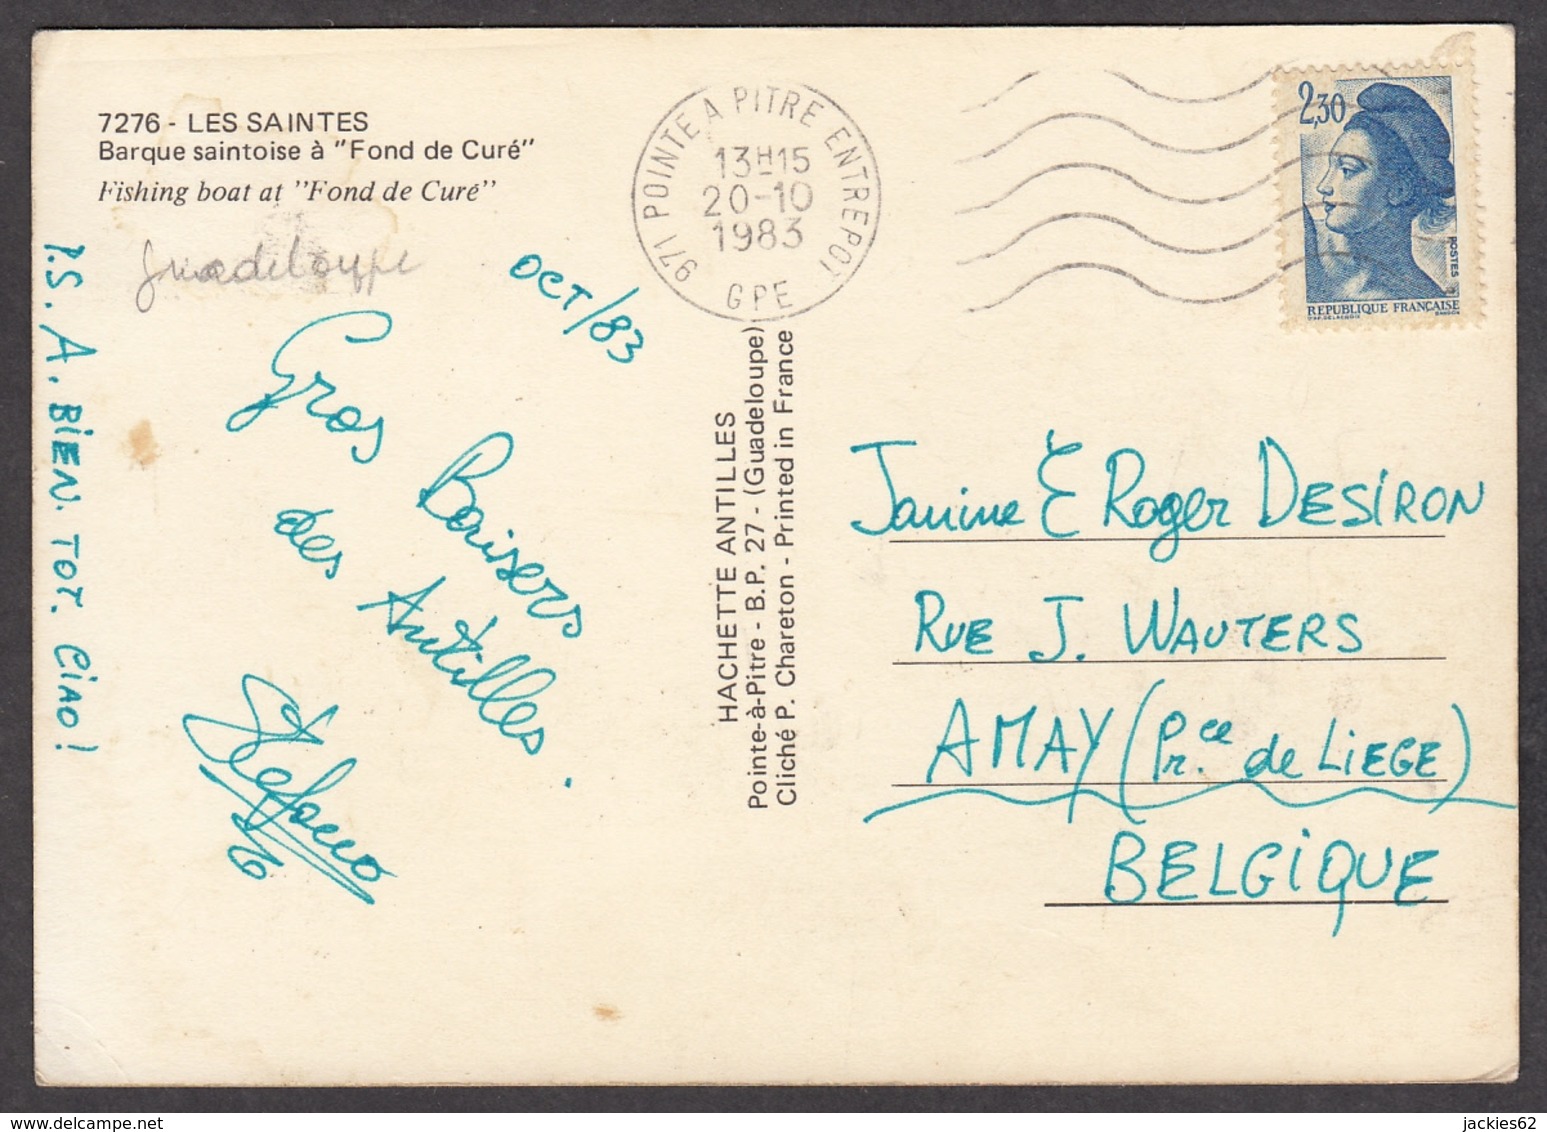 7276 - LES SAINTES
Barque saintoise à "Fond de Curé"
Fishing boat at "Fond de Curé"
Guadeloupe
OCT/83
Gros Baisers
des Antilles.
Stefano
P.S. A. BIEN. TOT. CIAO!
971 POINTE A PITRE ENTREPOT
13H15
20-10
1983
GPE
HACHETTE ANTILLES
Pointe-à-Pitre - B.P. 27 - (Guadeloupe)
Cliché P. Chareton - Printed in France
2,30
POSTES
REPUBLIQUE FRANÇAISE
Janine & Roger DESIRON
RUE J. WAUTERS
AMAY (Pr.ce de LIEGE)
BELGIQUE
jackies62